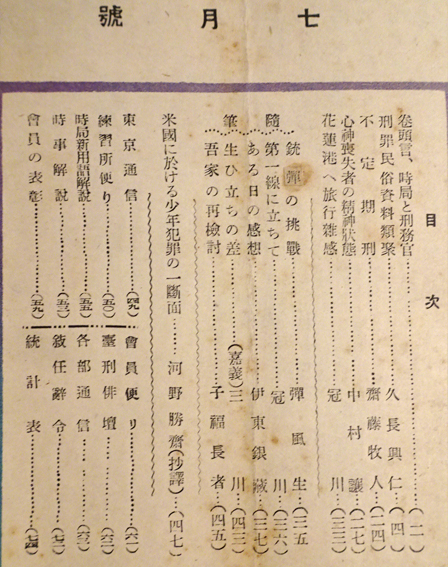 七月號
目次
卷頭言、時局と刑務官……(一)
刑罪民俗資料類聚……久長興仁……(四)
不定期刑……齋藤牧人……(二四)
心神喪失者の精神狀態……中村讓……(二七)
花蓮港へ旅行雜感……冠川……(三三)
隨筆
銃彈の挑戰……彈風生……(三五)
第一線に立ちて……冠川……(三六)
ある日の感想……伊東銀藏……(三七)
生ひ立ちの差……(嘉義)三川……(四三)
吾家の再檢討……子福長者……(四五)
米國に於ける少年犯罪の一斷面……河野勝齋(抄譯)……(四七)
東京通信……(四九)
練習所便り……(五〇)
時局新用語解說……(五五)
時事解說……(五三)
會員の表彰……(五九)
會員便り……(六一)
臺刑俳壇……(六二)
各部通信……(六三)
敍任辭令……(七三)
統計表……(七四)